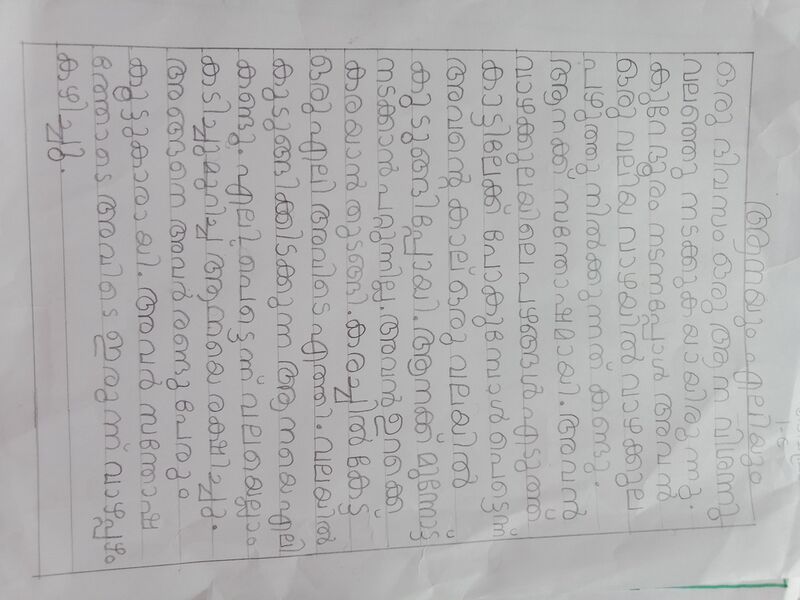 ആനയും എലിയും
ഒരു ദിവസം ഒരു ആന വിശന്നു
വലഞ്ഞു നടക്കുകയായിരുന്നു.
കുറേദൂരം നടന്നപ്പോൾ അവൻ
ഒരു വലിയ വാഴയിൽ വാഴക്കുല
പഴുത്തു നിൽക്കുന്നത് കണ്ടു.
ആനക്ക് സന്തോഷമായി. അവൻ
വാഴക്കുലയിലെ പഴങ്ങൾ എടുത്ത്
കാട്ടിലേക്ക് പോകുമ്പോൾ പെട്ടെന്ന്
അവന്റെ കാല് ഒരു വലയിൽ
കുടുങ്ങിപ്പോയി. ആനക്ക് മുന്നോട്ട്
നടക്കാൻ പറ്റുന്നില്ല. അവൻ ഉറക്കെ
കരയാൻ തുടങ്ങി. കരച്ചിൽ കേട്ട്
ഒരു എലി അവിടെ എത്തി. വലയിൽ
കുടുങ്ങിക്കിടക്കുന്ന ആനയെ എലി
കണ്ടു. എലി പെട്ടെന്ന് വലയെല്ലാം
കടിച്ചുമുറിച്ച് ആനയെ രക്ഷിച്ചു.
അങ്ങനെ അവർ രണ്ടുപേരും
കൂട്ടുകാരായി. അവർ സന്തോഷ
ത്തോടെ അവിടെ ഇരുന്ന് വാഴപ്പഴം
കഴിച്ചു.